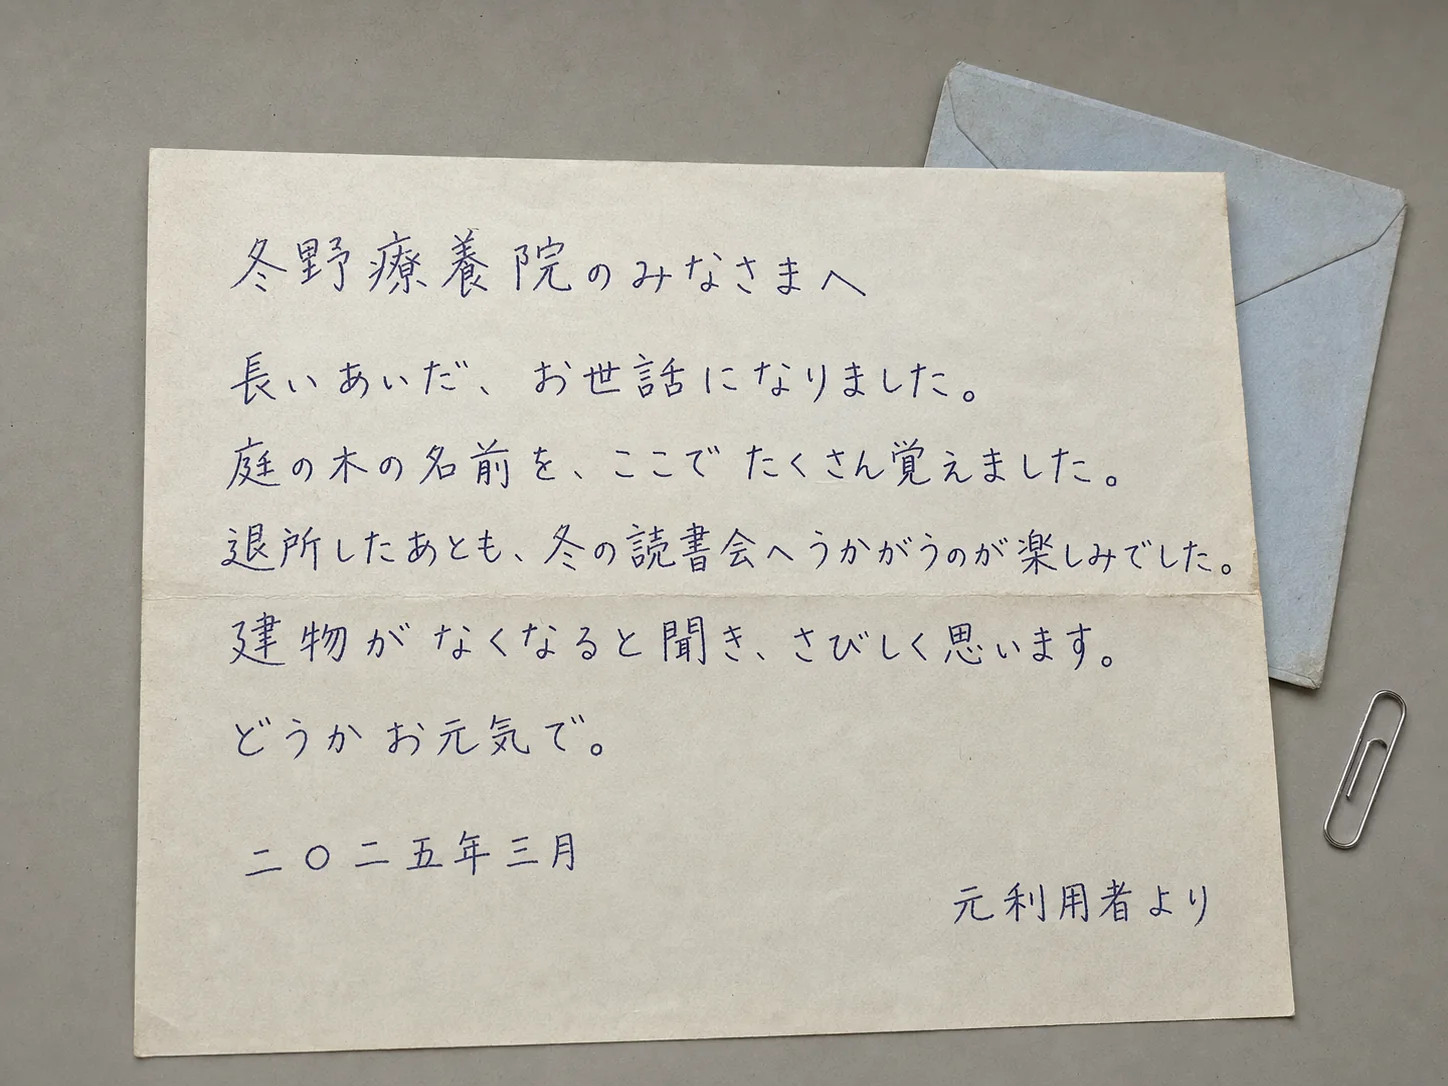 冬野療養院のみなさまへ
長いあいだ、お世話になりました。
庭の木の名前を、ここでたくさん覚えました。
退所したあとも、冬の読書会へうかがうのが楽しみでした。
建物がなくなると聞き、さびしく思います。
どうかお元気で。
二〇二五年三月
元利用者より